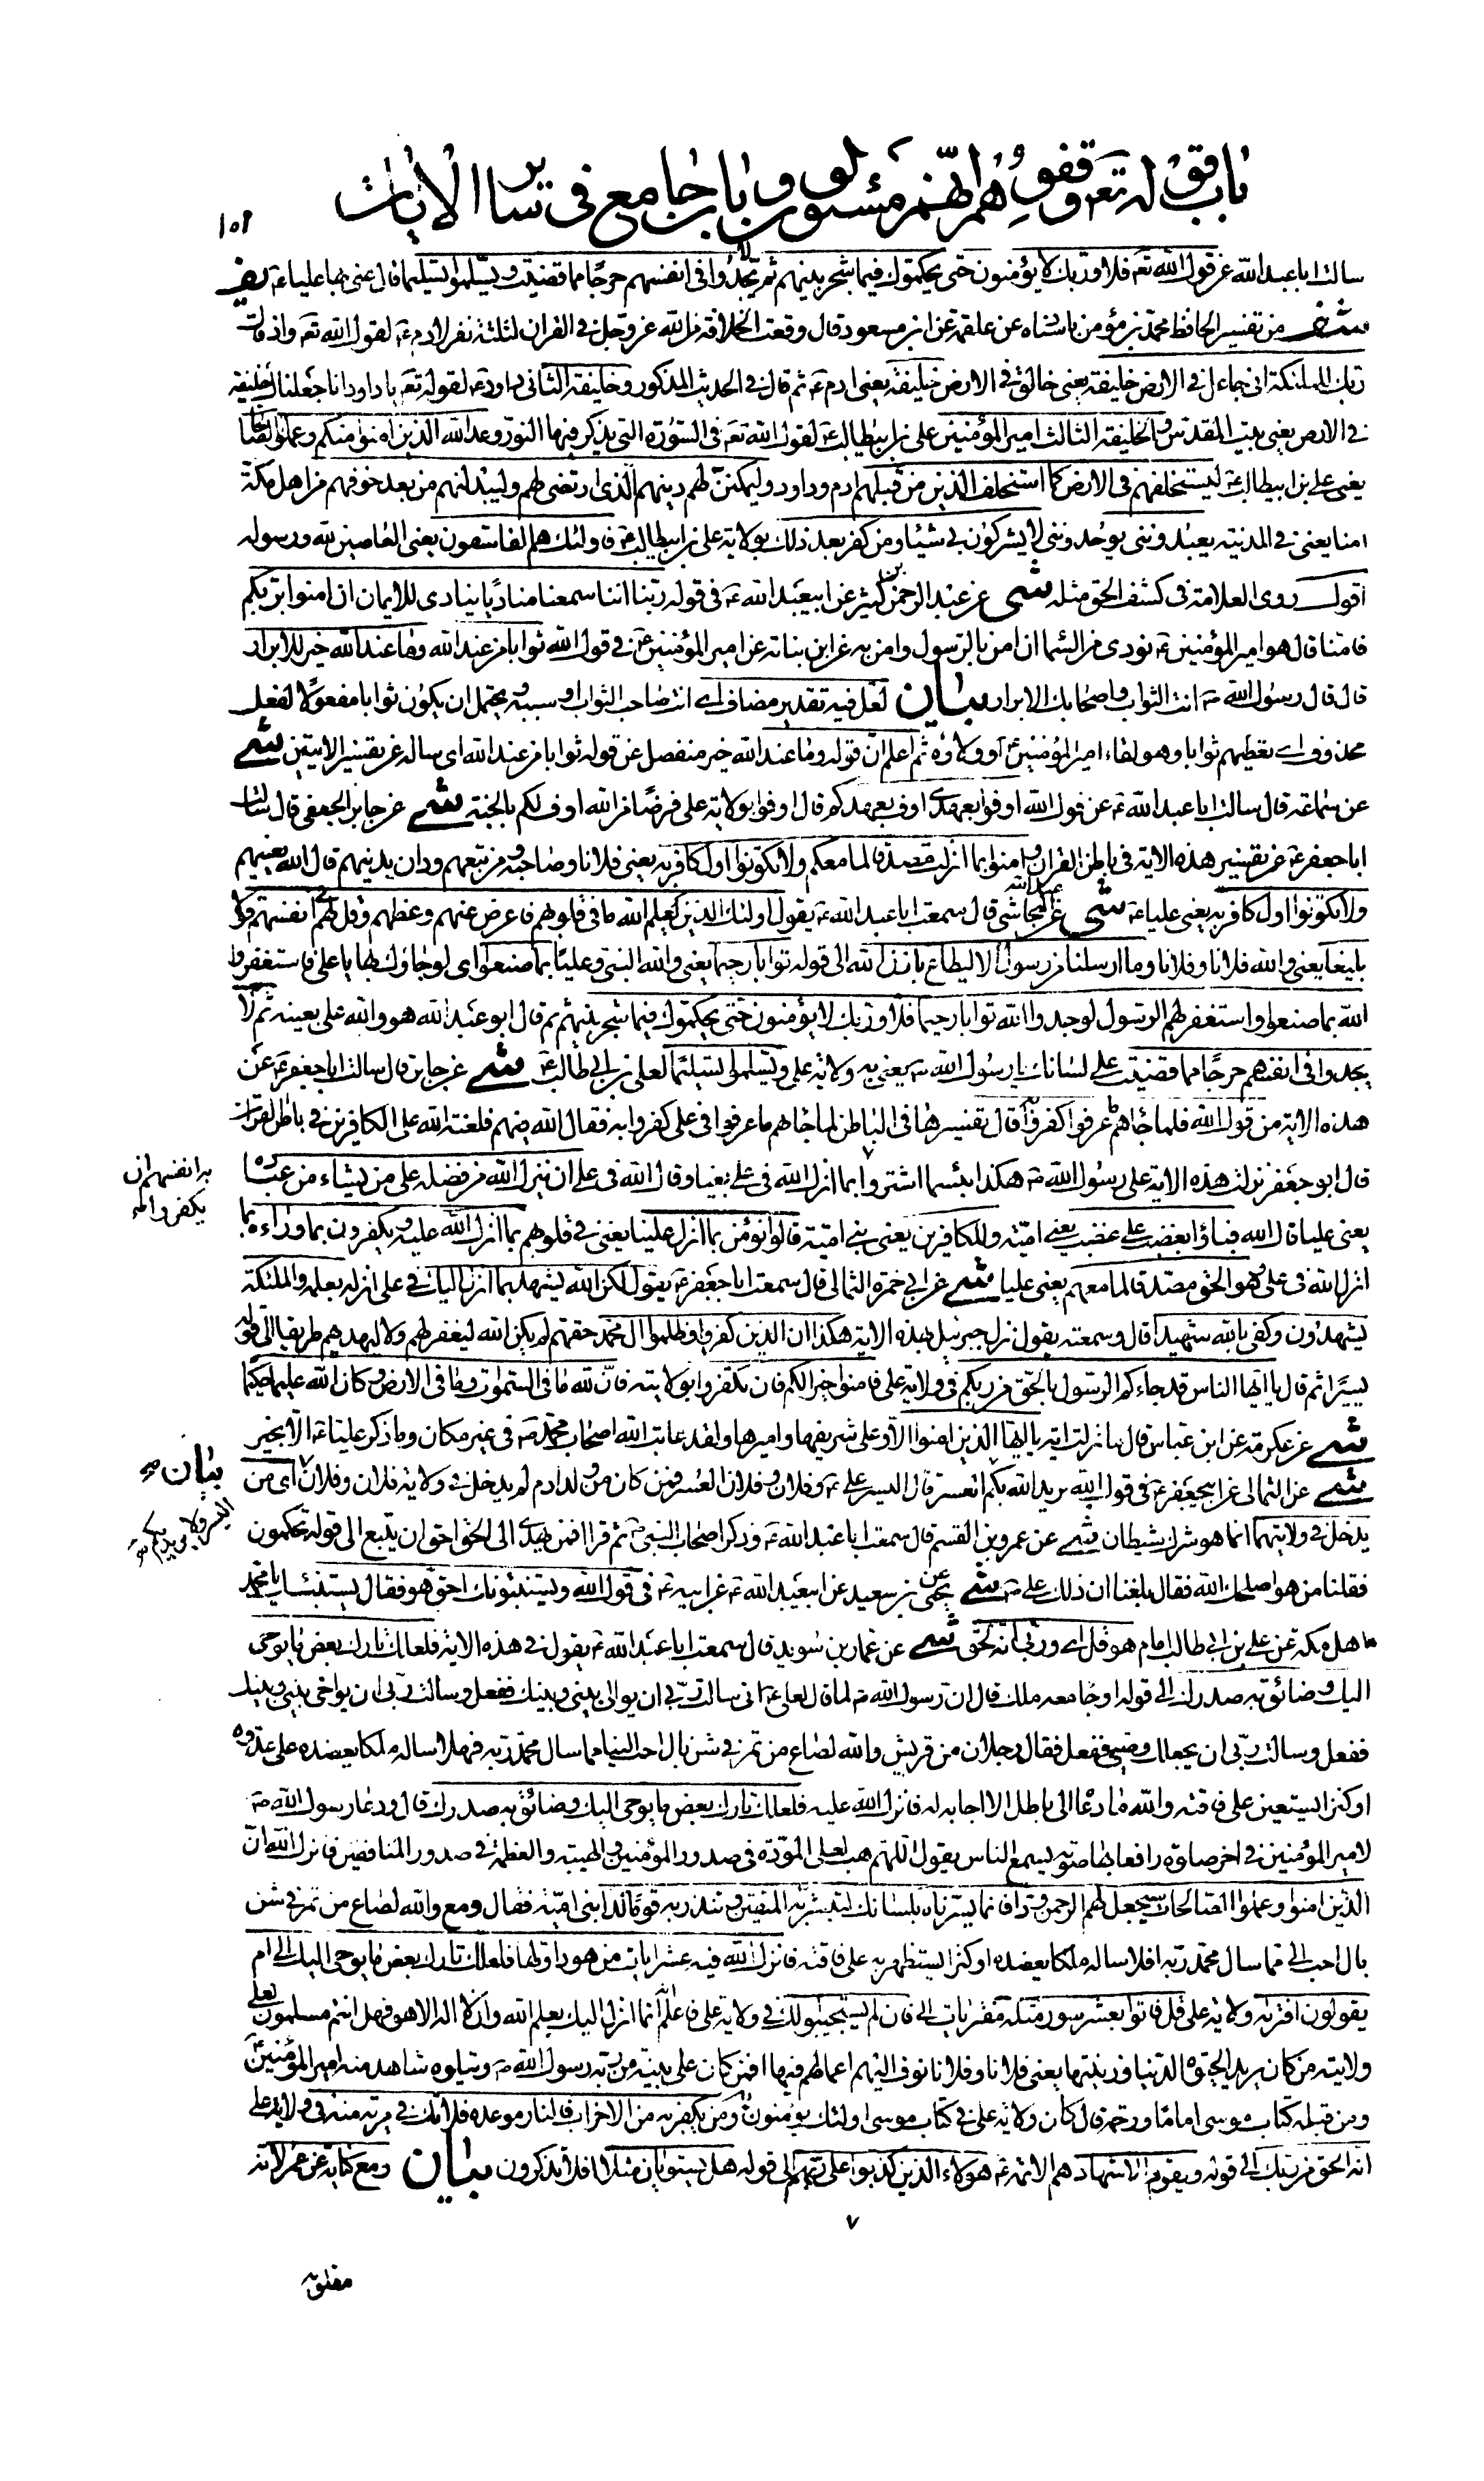 باب قوله تع وقفوهم انهم مسئولون باب جامع في ساير الايات
١٥٢
سالت ابا عبد الله عن قول الله تع فلا وربك لا يؤمنون حتى يحكموك فيما شجر بينهم ثم لا يجدوا في انفسهم حرجا مما قضيت ويسلموا تسليما قال عنى بها عليا ع يف
شف من تفسير الحافظ محمد بن مؤمن باسناده عن علقمة عن ابن مسعود قال وقعت الخلافة من الله عز وجل في القران لثلثة نفر لادم ع لقول الله تع واذ قال
ربك للملئكة اني جاعل في الارض خليفة يعني خالق في الارض خليفة يعني ادم ع ثم قال في الحديث المذكور وخليفة الثاني داود ع لقوله تع يا داود انا جعلناك خليفة
في الارض يعني بيت المقدس والخليفة الثالث امير المؤمنين علي بن ابيطالب ع لقول الله تع في السورة التي يذكر فيها النور وعد الله الذين امنوا منكم وعملوا الصالحات
يعني علي بن ابيطالب ع ليستخلفنهم في الارض كما استخلف الذين من قبلهم ادم وداود وليمكنن لهم دينهم الذي ارتضى لهم وليبدلنهم من بعد خوفهم من اهل مكة
امنا يعني في المدينة يعبدونني يوحدونني لا يشركون بي شيئا ومن كفر بعد ذلك بولاية علي بن ابيطالب ع فاولئك هم الفاسقون يعني العاصين لله ورسوله
اقول روى العلامة في كشف الحق مثله شي عن عبد الرحمن بن كثير عن ابيعبد الله ع في قوله ربنا اننا سمعنا مناديا ينادي للايمان ان امنوا بربكم
فامنا قال هو امير المؤمنين ع نودي من السماء ان امن بالرسول وامن به عن ابن نباتة عن امير المؤمنين ع في قول الله ثوابا من عند الله وما عند الله خير للابرار
قال قال رسول الله ص انت الثواب واصحابك الابرار بيان لعل فيه تقدير مضاف اي انت صاحب الثواب او سببه ويحتمل ان يكون ثوابا مفعولا لفعل
محذوف اي نعطيهم ثوابا وهو لقاء امير المؤمنين ع او ولاؤه ثم اعلم ان قوله وما عند الله خير منفصل عن قوله ثوابا من عند الله اي ساله عن تفسير الايتين شي
عن سماعة قال سالت ابا عبد الله ع عن قول الله اوفوا بعهدي اوف بعهدكم قال اوفوا بولاية علي فرضا من الله اوف لكم بالجنة شي عن جابر الجعفي قال سالت
ابا جعفر ع عن تفسير هذه الاية في باطن القران وامنوا بما انزلت مصدقا لما معكم ولا تكونوا اول كافر به يعني فلانا وصاحبه ومن تبعهم ودان بدينهم قال الله يعنيهم
ولا تكونوا اول كافر به يعني عليا ع شي عن عبد الله النجاشي قال سمعت ابا عبد الله ع يقول اولئك الذين يعلم الله ما في قلوبهم فاعرض عنهم وعظهم وقل لهم في انفسهم قولا
بليغا يعني والله فلانا وفلانا وما ارسلنا من رسول الا ليطاع باذن الله الى قوله توابا رحيما يعني والله النبي وعليا بما صنعوا اي لو جاؤك بها يا علي فاستغفروا
الله بما صنعوا واستغفر لهم الرسول لوجدوا الله توابا رحيما فلا وربك لا يؤمنون حتى يحكموك فيما شجر بينهم ثم قال ابو عبد الله هو والله علي بعينه ثم لا
يجدوا في انفسهم حرجا مما قضيت على لسانك يا رسول الله ص يعني به ولاية علي ويسلموا تسليما لعلي بن ابي طالب ع شي عن جابر قال سالت ابا جعفر ع عن
هذه الاية من قول الله فلما جاءهم ما عرفوا كفروا به قال تفسيرها في الباطن لما جاءهم ما عرفوا في علي كفروا به فقال الله فيهم فلعنة الله على الكافرين في باطن القران
قال ابو جعفر نزلت هذه الاية على رسول الله ص هكذا بئسما اشتروا بما انزل الله في علي بغيا وقال الله في علي ان ينزل الله من فضله على من يشاء من عباده
به انفسهم ان
يكفروا
يعني عليا قال الله فباؤا بغضب على غضب يعني بني امية وللكافرين يعني بني امية قالوا نؤمن بما انزل علينا يعني في قلوبهم بما انزل الله عليه ويكفرون بما وراءه بما
انزل الله في علي وهو الحق مصدقا لما معهم يعني عليا شي عن ابي حمزة الثمالي قال سمعت ابا جعفر ع يقول لكن الله يشهد بما انزل اليك في علي انزله بعلمه والملئكة
يشهدون وكفى بالله شهيدا قال وسمعته يقول نزل جبرئيل بهذه الاية هكذا ان الذين كفروا وظلموا ال محمد حقهم لم يكن الله ليغفر لهم ولا ليهديهم طريقا الى قوله
يسيرا ثم قال يا ايها الناس قد جاءكم الرسول بالحق من ربكم في ولاية علي فامنوا خيرا لكم فان تكفروا بولايته فان لله ما في السموات وما في الارض وكان الله عليما حكيما
شي عن عكرمة عن ابن عباس قال ما نزلت اية يا ايها الذين امنوا الا وعلي شريفها واميرها ولقد عاتب الله اصحاب محمد ص في غير مكان وما ذكر عليا ع الا بخير
شي عن الثمالي عن ابيجعفر ع في قول الله يريد الله بكم العسر قال اليسر علي ع وفلان وفلان العسر فمن كان من ولد ادم لم يدخل في ولاية فلان وفلان اي من
بيان
اليسر ولا يريد بكم
يدخل في ولايتهما انما هو شرك شيطان شي عن عمرو بن القسم قال سمعت ابا عبد الله ع وذكر اصحاب النبي ص ثم قرا افمن يهدي الى الحق احق ان يتبع الى قوله تحكمون
فقلنا من هو اصلحك الله فقال بلغنا ان ذلك علي ع شي عن يحيى بن سعيد عن ابيعبد الله ع عن ابيه ع في قول الله ويستنبئونك احق هو فقال يستنبئك يا محمد
اهل مكة عن علي بن ابي طالب امام هو قل اي وربي انه لحق شي عن عمار بن سويد قال سمعت ابا عبد الله ع يقول في هذه الاية فلعلك تارك بعض ما يوحى
اليك وضائق به صدرك الى قوله او جاء معه ملك قال ان رسول الله ص لما قال لعلي ع اني سالت ربي ان يوالي بيني وبينك ففعل وسالت ربي ان يواخي بيني وبينك
ففعل وسالت ربي ان يجعلك وصيي ففعل فقال رجلان من قريش والله لصاع من تمر في شن بال احب الينا مما سال محمد ربه فهلا ساله ملكا يعضده على عدوه
او كنزا يستعين على فاقته والله ما دعاه الى باطل الا اجابه له فانزل الله عليه فلعلك تارك بعض ما يوحى اليك وضائق به صدرك قال ودعا رسول الله ص
لامير المؤمنين في اخر صلوته رافعا بها صوته يسمع الناس يقول اللهم هب لعلي المودة في صدور المؤمنين والهيبة والعظمة في صدور المنافقين فانزل الله ان
الذين امنوا وعملوا الصالحات سيجعل لهم الرحمن ودا فانما يسرناه بلسانك لتبشر به المتقين وتنذر به قوما لدا بني امية فقال رمع والله لصاع من تمر في شن
بال احب الي مما سال محمد ربه افلا ساله ملكا يعضده او كنزا يستظهر به على فاقته فانزل الله فيه عشر ايات من هود اولها فلعلك تارك بعض ما يوحى اليك الى ام
يقولون افتريه ولاية علي قل فاتوا بعشر سور مثله مفتريات الى فان لم يستجيبوا لك في ولاية علي فاعلم انما انزل اليك بعلم الله وان لا اله الا هو فهل انتم مسلمون لعلي
ولايته من كان يريد الحيوة الدنيا وزينتها يعني فلانا وفلانا نوف اليهم اعمالهم فيها افمن كان على بينة من ربه رسول الله ص ويتلوه شاهد منه امير المؤمنين ع
ومن قبله كتاب موسى اماما ورحمة قال كان ولاية علي في كتاب موسى اولئك يؤمنون به ومن يكفر به من الاحزاب فالنار موعده فلا تك في مرية منه في ولاية علي
انه الحق من ربك الى قوله ويقوم الاشهاد هم الائمة ع هؤلاء الذين كذبوا على ربهم الى قوله هل يستويان مثلا افلا تذكرون بيان رمع كناية عن عمر لانه
٧
مقلوبه